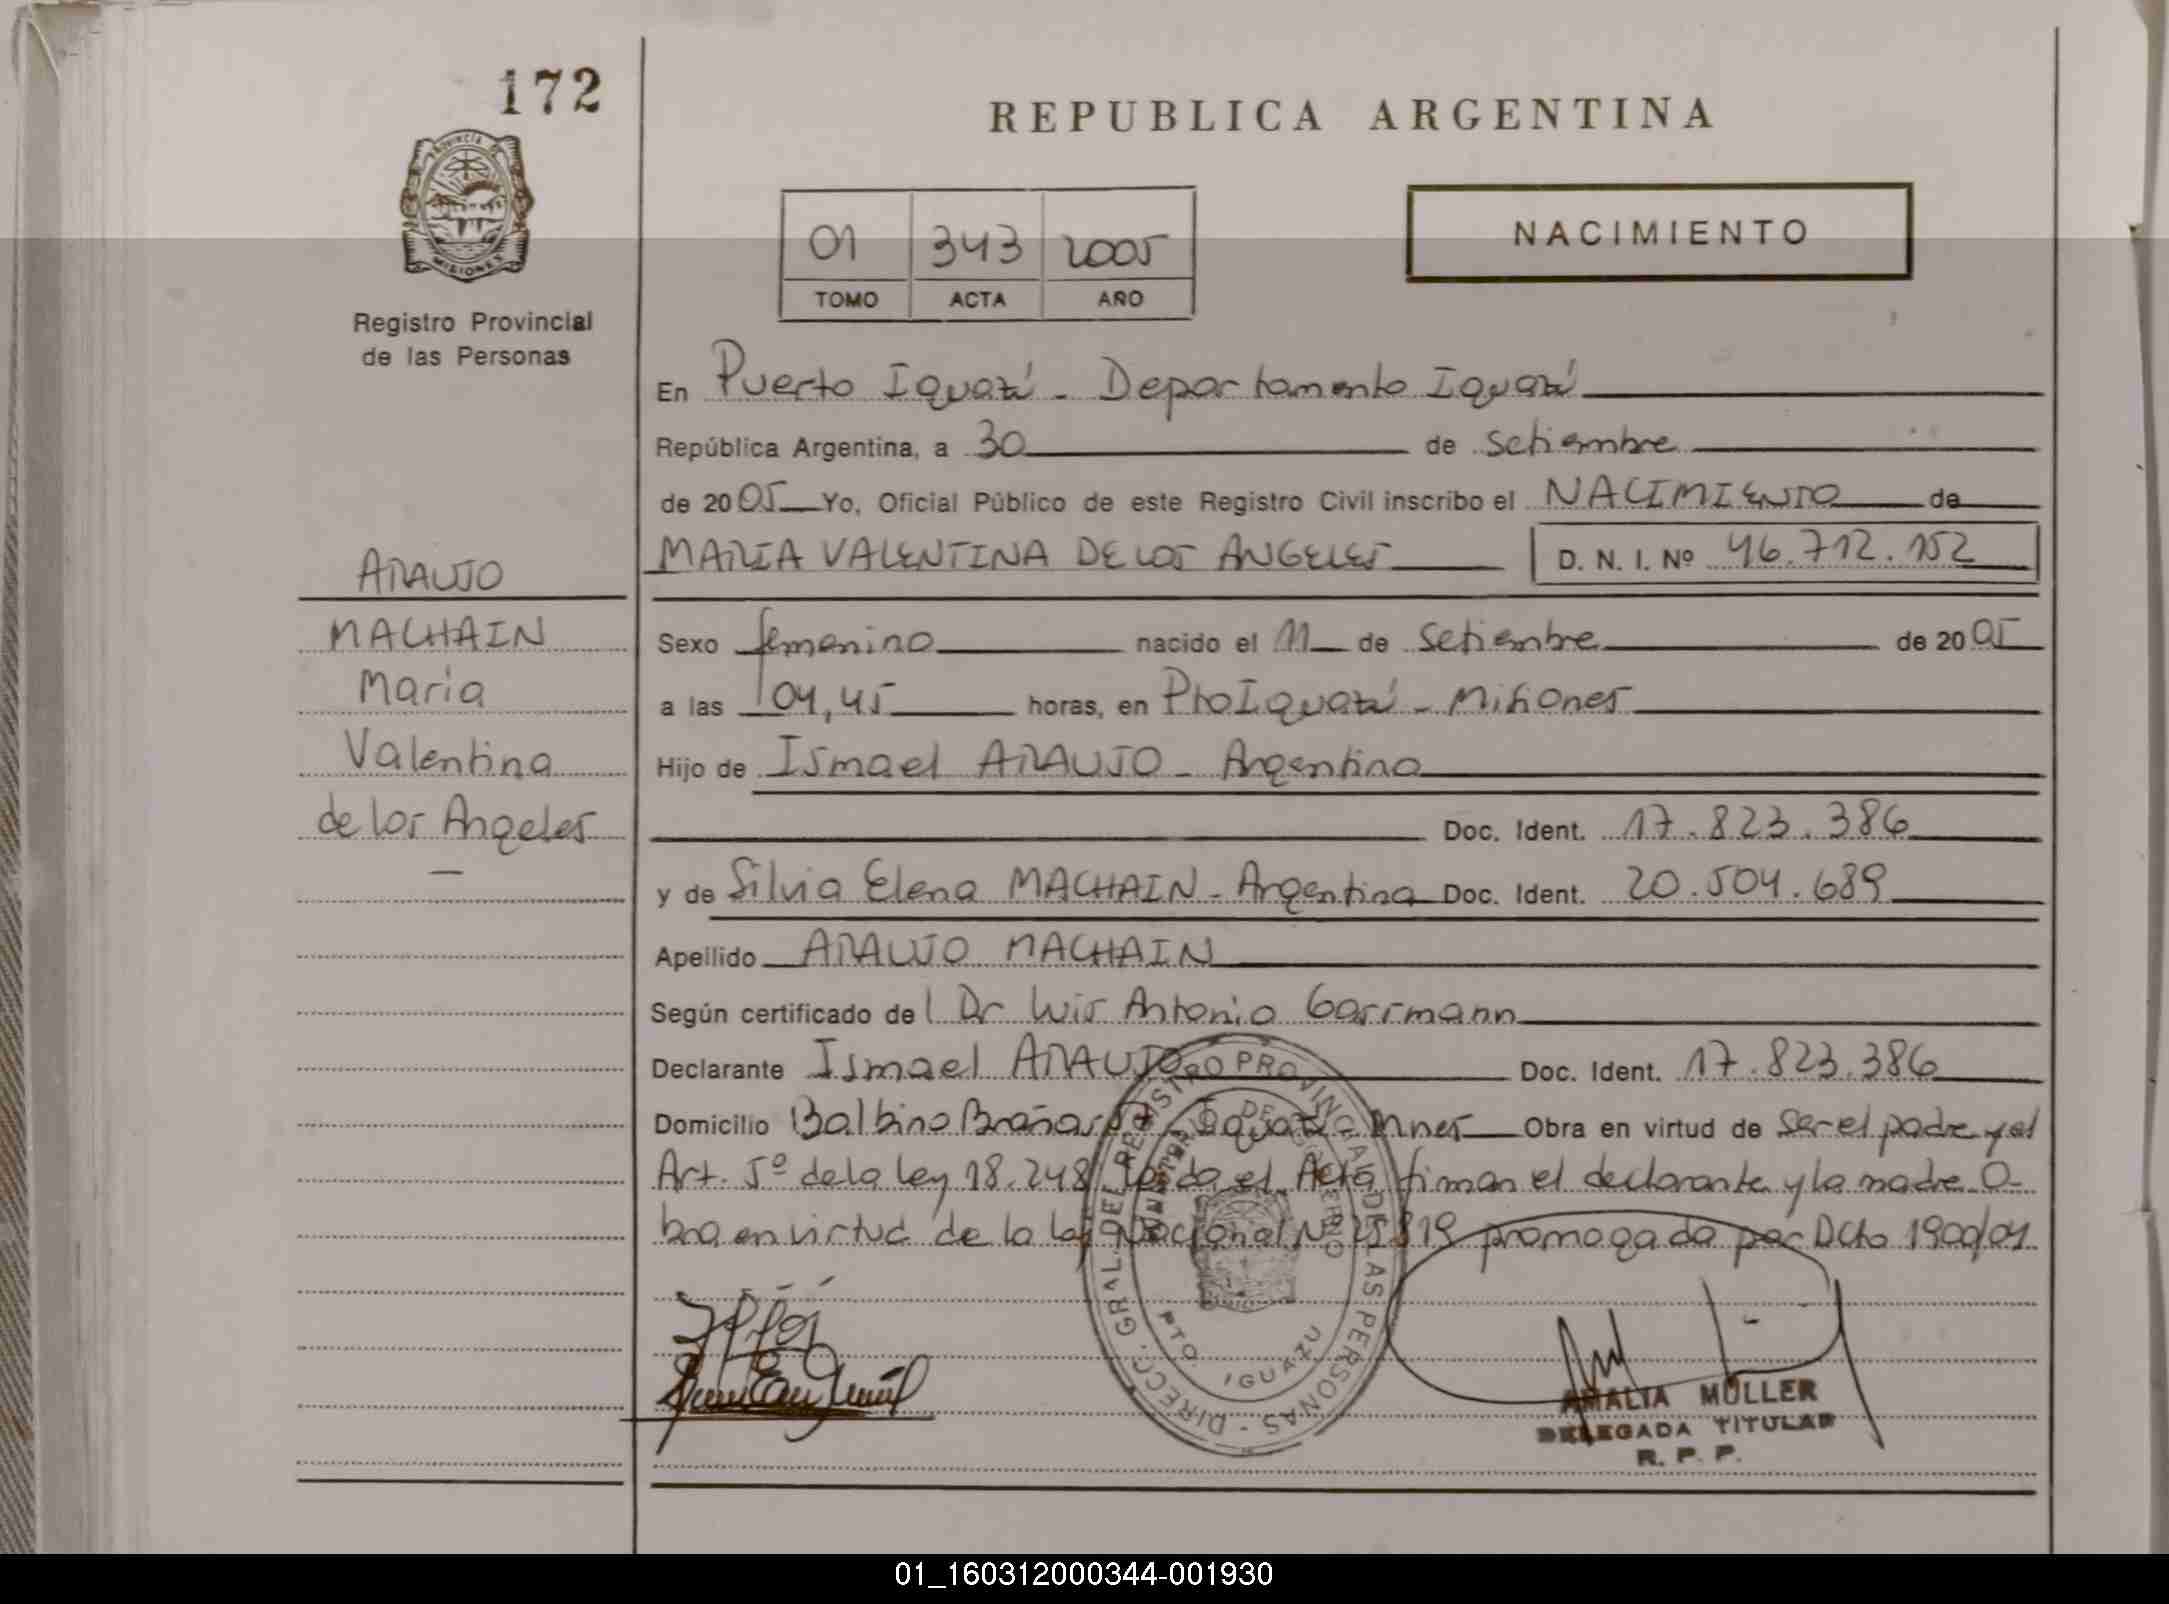 172
REPUBLICA ARGENTINA
PROVINCIA DE
MISIONES
Registro Provincial
de las Personas
01 343 2005
TOMO ACTA AÑO
NACIMIENTO
En Puerto Iguazú - Departamento Iguazú
República Argentina, a 30 de setiembre
de 2005 Yo, Oficial Público de este Registro Civil inscribo el NACIMIENTO de
MARIA VALENTINA DE LOS ANGELES D. N. I. Nº 46.712.152
ARAUJO
MACHAIN
Maria
Valentina
de los Angeles
Sexo femenino nacido el 11 de Setiembre de 2005
a las 04,45 horas, en Pto Iguazú - Misiones
Hijo de Ismael ARAUJO - Argentino
Doc. Ident. 17.823.386
y de Silvia Elena MACHAIN - Argentina Doc. Ident. 20.504.689
Apellido ARAUJO MACHAIN
Según certificado del Dr Luis Antonio Garrmann
Declarante Ismael ARAUJO Doc. Ident. 17.823.386
Domicilio Balbino Brañas Iguazú - Mnes Obra en virtud de ser el padre y el
Art. 5º de la ley 18.248 leida el Acta firman el declarante y la madre O-
bra en virtud de la ley Nacional Nº 25819 promogada por Dcto 1900/04
DIRECC. GRAL. DEL REGISTRO PROVINCIAL DE LAS PERSONAS -
MINISTERIO DE GOBIERNO
PTO IGUAZU
AMALIA MÜLLER
DELEGADA TITULAR
R. P. P.
01_160312000344-001930